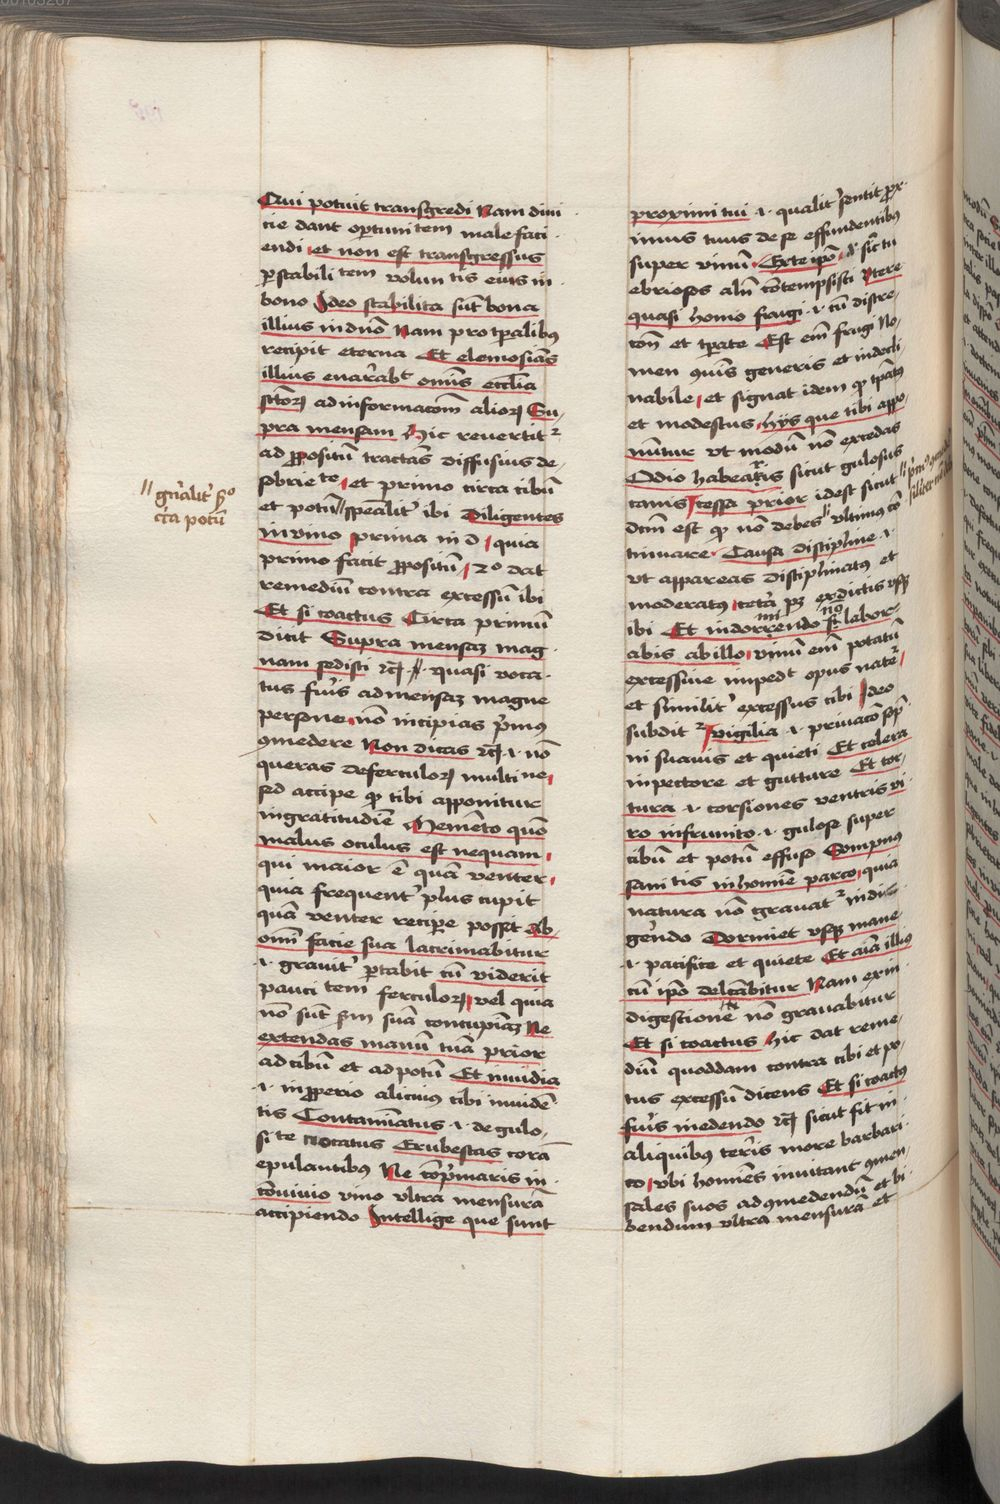 Qui potuit transgredi Nam divi
cie dant oportunitem male faci
endi et non est transgressus
ꝑ stabilitem voluntis eius in
bono Ideo stabilita sūt bona
illius in dño Nam pro tꝑalibus
recipit eterna Et elemosias
illius enarrabt omīs ecclīa
sctorꝝ ad informacōm aliorꝝ Su
pra mensam Hic revertitr
ad ꝓpositū tractās diffusius de
sobriete et primo circa cibū
et potū // spealit' ibi Diligentes
in vino prima in d quia
primo facit ꝓpositū 2o dat
remediū contra excessū ibi
Et si coactus Circa primū
dicit Supra mensaꝫ mag
nam sedisti rcꝫ quasi voca
tus fu'is ad mensaꝫ magne
persone nō incipias p'mus
ꝯmedere Non dicas rcꝫ .i. nō
queras de ferculorꝫ multine
sed accipe qꝫ tibi apponitur
ingratitudīe Memēto quō
malus oculus est nequam
qui maior ē quā venter
quia frequent' plus cupit
quā venter recipe posset Ab
omi facie sua lacrimabitur
.i. gravit' ꝑtabit cū viderit
paucitem ferculorꝫ vel quia
nō sūt sꝫm suā concupiaꝫ Ne
extendas manū tuā prior
ad cibū et ad potū Et invidia
.i. inꝓperio alicuius tibi invidē
tis Contamīatus .i. de gulo
site notatus Erubescas corā
epulantibus Ne cōp'maris in
cōvivio vino ultra mensurā
accipiendo Intellige que sunt
// gn'alit' ꝯo
circa potū
proximi tui .i. qualit' sentit prox
imus tuus de se effundentibus
super vinū Ex te ipō .i. sic' tu
ebriosos alīi cōtempsisti Vtere
quasi homo frugi .i. cū discre
cōn et tꝑate Est eīm frugi No
men ꝯmīs generis et indecli
nabile et signat idem qꝫ tꝑatus
et modestus hijs que tibi appo
nūtur vt modū nō excedas
Odio habearis sicut gulosus
canis Cessa prior idest sicut
dcm est qꝫ nō debes // vltimus cō
tinuare Causa discipline .i.
vt appareas disciplinatus et
moderatus cetā pꝫ ex dictis vsꝫ
ibi Et in dormiendo nō labor
abis ab illo vinū eīm potatū
excessive impedt opus nate
et similit' excessus cibi Ideo
subdit Vigilia .i. privacō sōp
ni suavis et quieti Et colera
in pectore et gutture Et tor
tura .i. torsiones ventris vi
ro infrunito .i. gulose super
cibū et potū effuso Sompnus
sanitis in homīe parco quia
natura nō gravatr in di
gerendo Dormiet vsꝫ mane
.i. pacifice et quiete Et aīa illius
cū ipō delcābitur Nam ex in
digestione nō gravabitur
Et si coactus Hic dat reme
diū quoddam contra cibi et po
tus excessū dicens Et si coactus
fu'is in edendo rcꝫ sicut fit in
aliquibus terris more barbari
co vbi homīes invitant ꝯmen
sales suos ad ꝯmedendū et bi
bendum vltra mensurā et